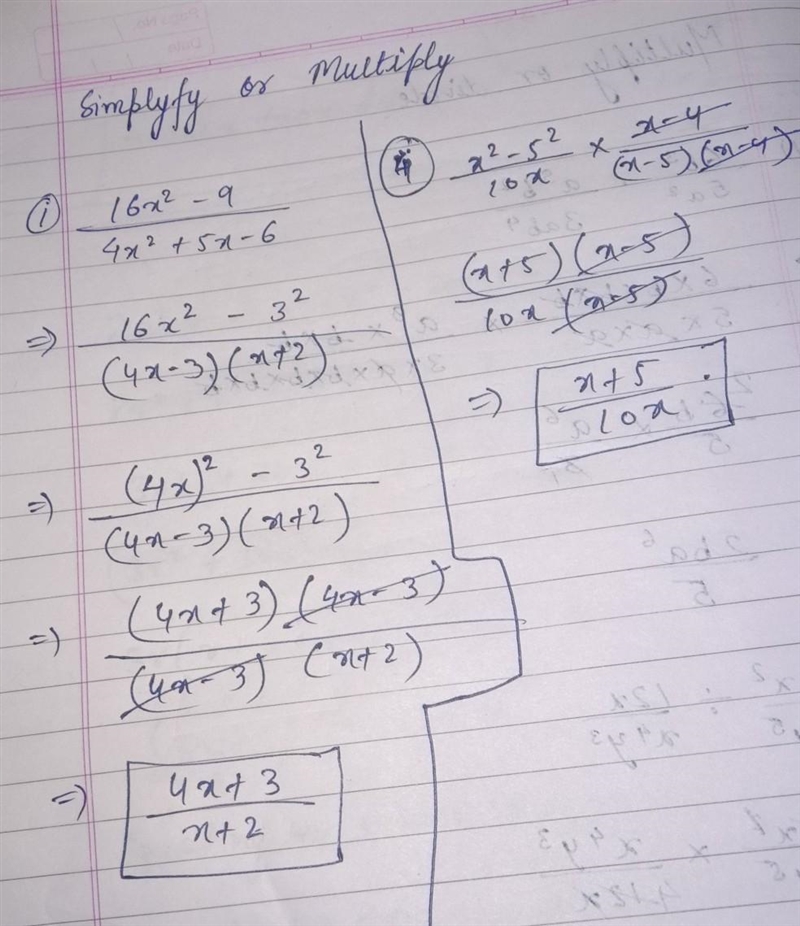 Page No.
Date
Simplyfy or Multiply
(i) (16x² - 9) / (4x² + 5x - 6)
=> (16x² - 3²) / ((4x-3)(x+2))
=> ((4x)² - 3²) / ((4x-3)(x+2))
=> ((4x+3)(4x-3)) / ((4x-3)(x+2))
=> (4x+3) / (x+2)
(4) (x² - 5²) / (10x) × (x-4) / ((x-5).(x-4))
((x+5)(x-5)) / (10x(x-5))
=> (x+5) / (10x) .